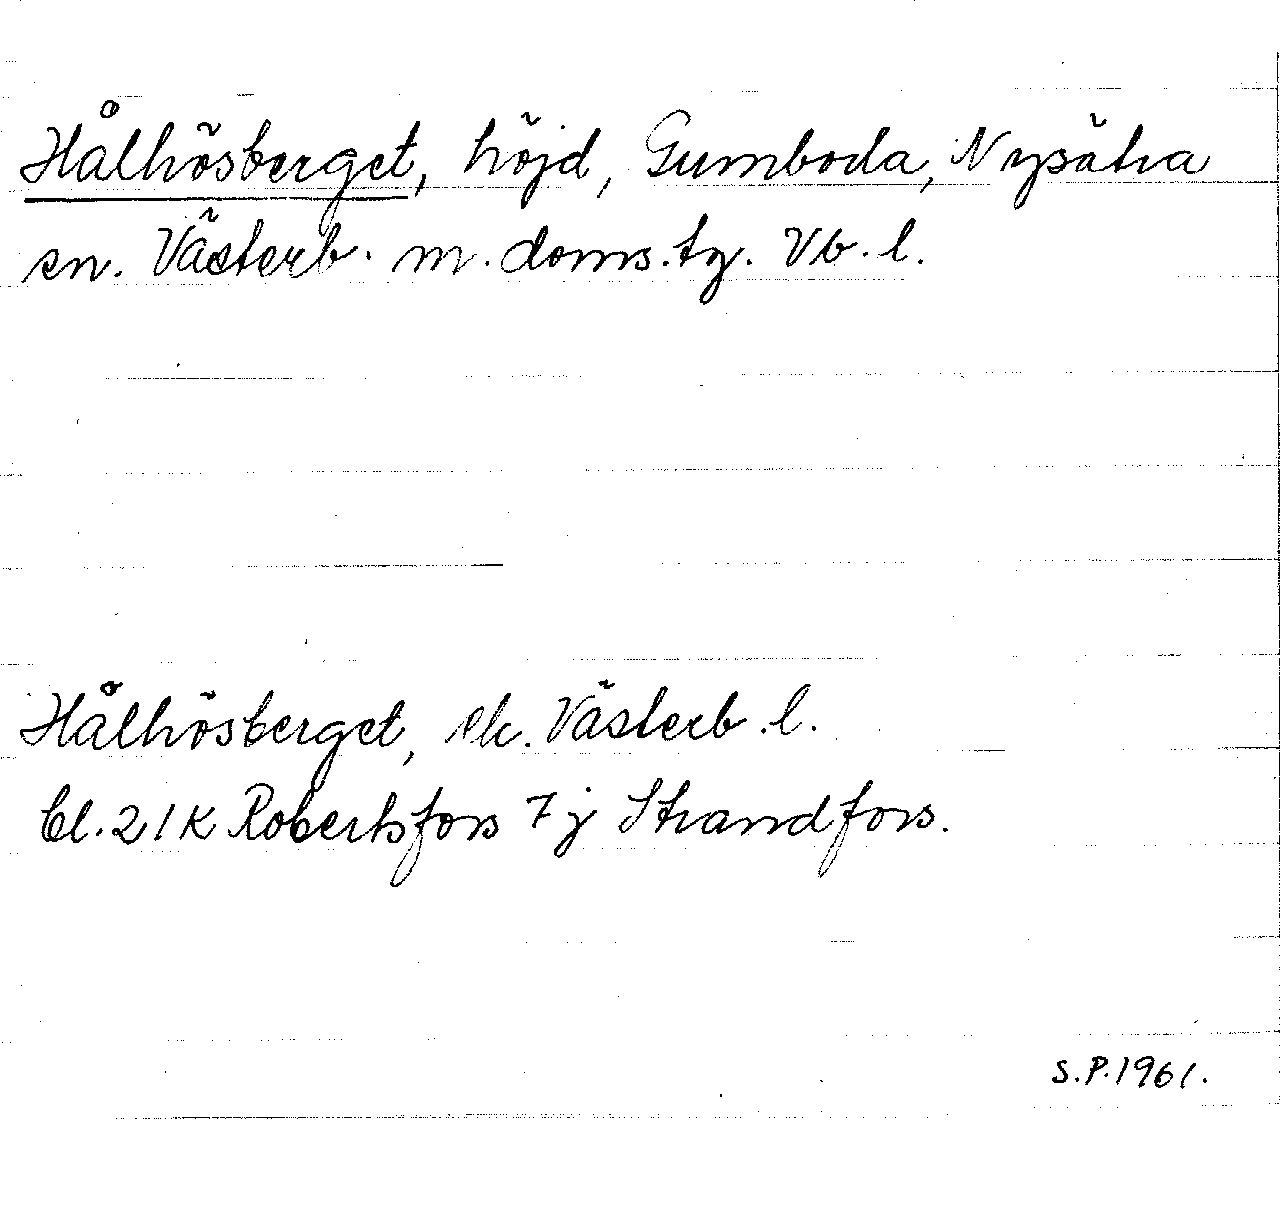 Hålhösberget, höjd, Gumboda, Nysätra
sn. Västerb. m. doms. tg. Vb. l.
Hålhösberget, ek. Västerb. l.
bl. 21K Robertsfors 7j Strandfors.
S.P. 1961.